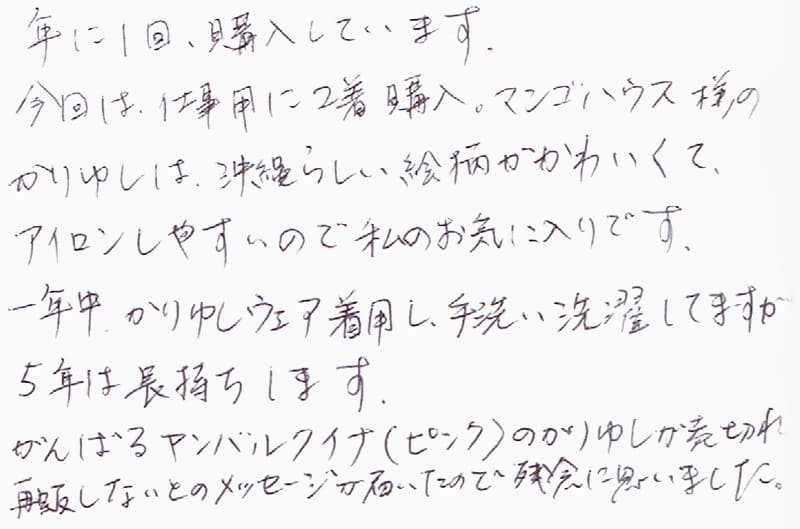 年に1回、購入しています。
今回は、仕事用に2着購入。マンゴハウス様の
かりゆしは、沖縄らしい絵柄がかわいくて、
アイロンしやすいので私のお気に入りです。
一年中、かりゆしウェア着用し、手洗い洗濯してますが
5年は長持ちします。
がんばるヤンバルクイナ(ピンク)のかりゆしが売切れ
再販しないとのメッセージが届いたので残念に思いました。